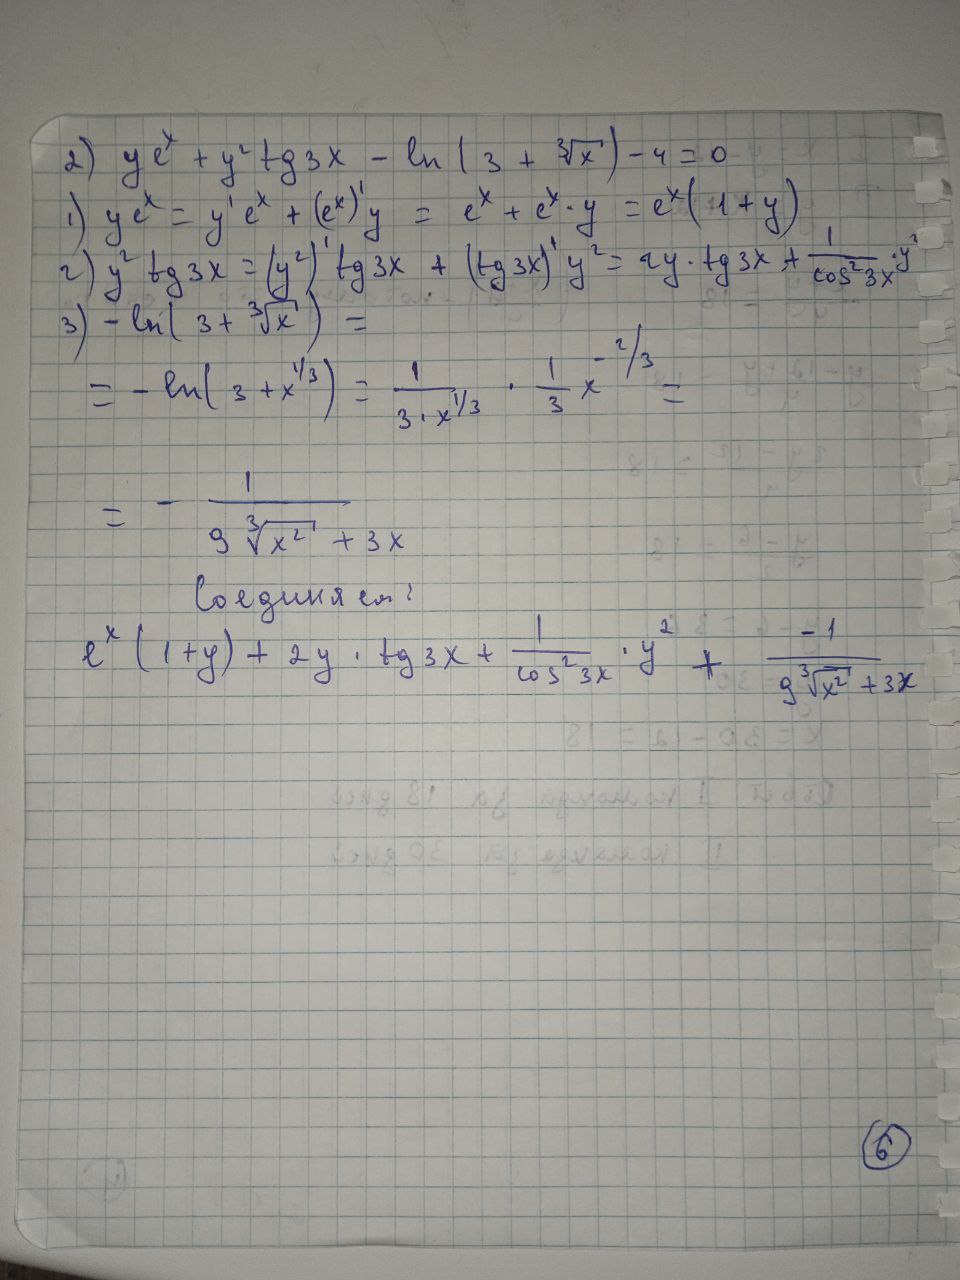 2) y eˣ + y² tg 3x - ln(3 + ∛x) - 4 = 0
1) y eˣ = y' eˣ + (eˣ)' y = eˣ + eˣ · y = eˣ (1 + y)
2) y² tg 3x = (y²)' tg 3x + (tg 3x)' y² = 2y · tg 3x + 1/cos² 3x · y²
3) - ln(3 + ∛x) =
= - ln(3 + x^1/3) = 1/(3 · x^1/3) · 1/3 x^-2/3 =
= - 1/(9 ∛x² + 3x)
Соединяем:
eˣ (1+y) + 2y · tg 3x + 1/cos² 3x · y² + -1/(9 ∛x² + 3x)
6